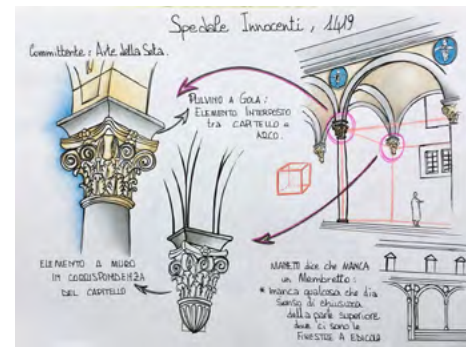 Spedale Innocenti, 1419
Committente: Arte della Seta.
PULVINO A GOLA:
ELEMENTO INTERPOSTO
tra CAPITELLO e
ARCO.
ELEMENTO A MURO
IN CORRISPONDENZA
DEL CAPITELLO
MANETTI dice che MANCA
un Membretto:
* manca qualcosa che dia
senso di chiusura
della parte superiore
dove ci sono le
FINESTRE A EDICOLA